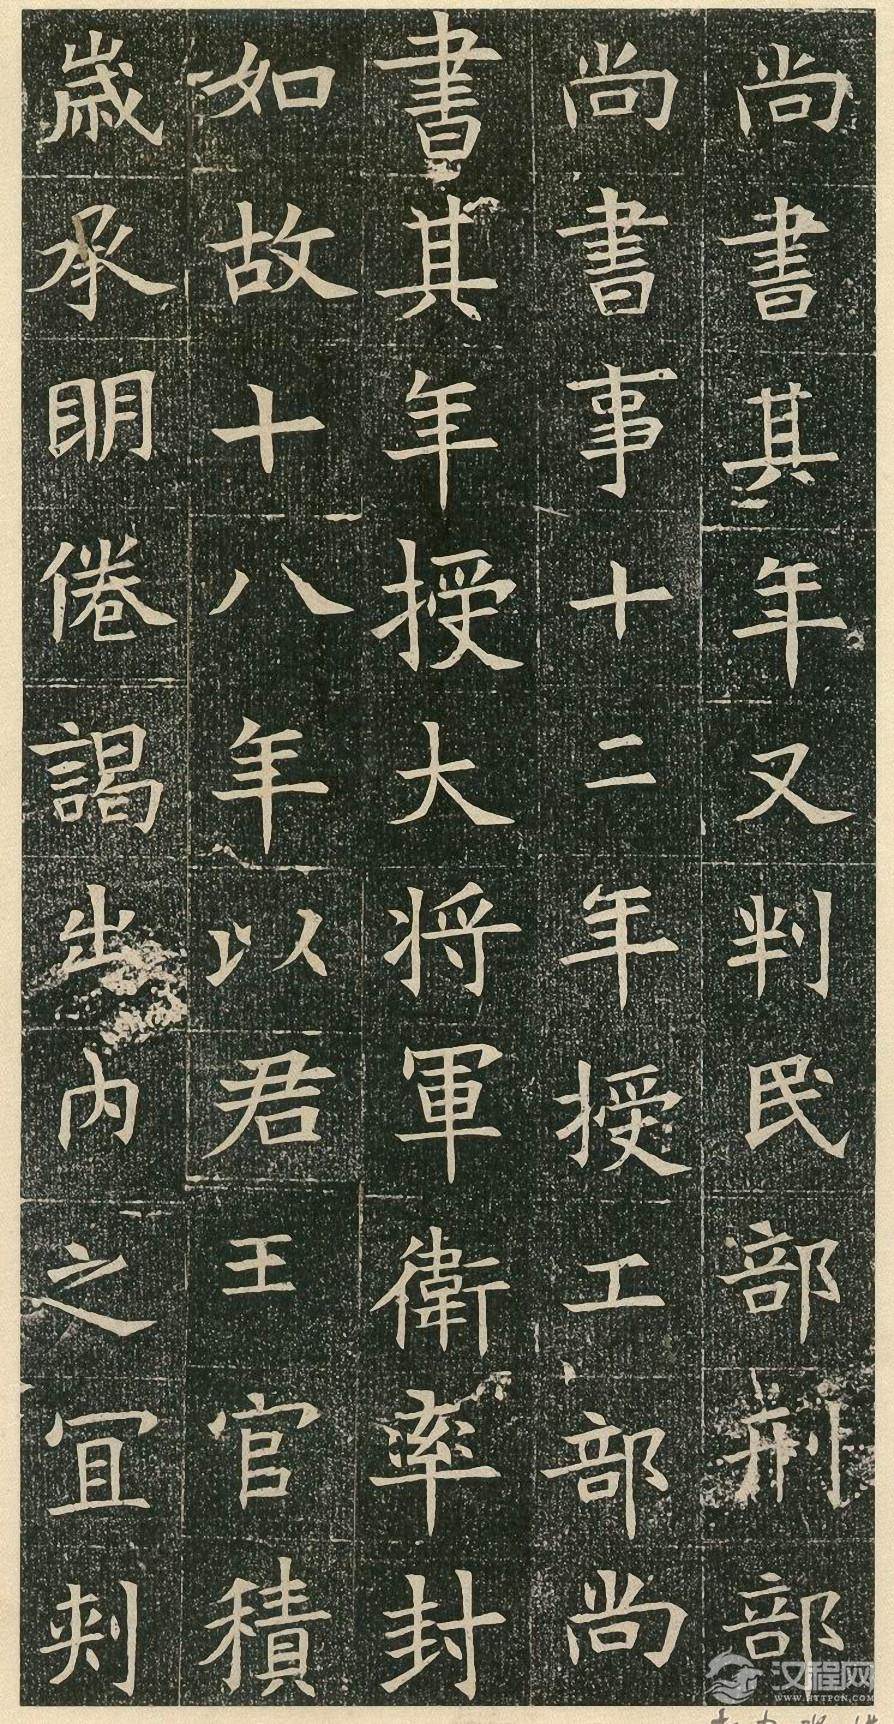 尚書其年又判民部刑部
尚書事十二年授工部尚
書其年授大将軍衛率封
如故十八年以君王官積
歳承明倦謁出内之宜刾
汉程网
WWW.HTTPCN.COM